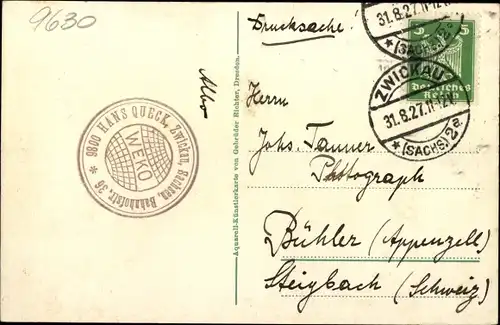 9630
Drucksache.
31.8.27.11-12V.
*(SACHS.)2a
5
Deutsches
Reich
ZWICKAU
31.8.27.11-12V.
*(SACHS.)2a
9800 HANS QUECK, Zwickau, Sachsen, Bahnhofstr. 36 *
WEKO
Aquarell-Künstlerkarte von Gebrüder Richter, Dresden.
Herrn
Johs. Tanner
Phttograph
Bühler (Appenzell)
Steigbach (Schweiz)